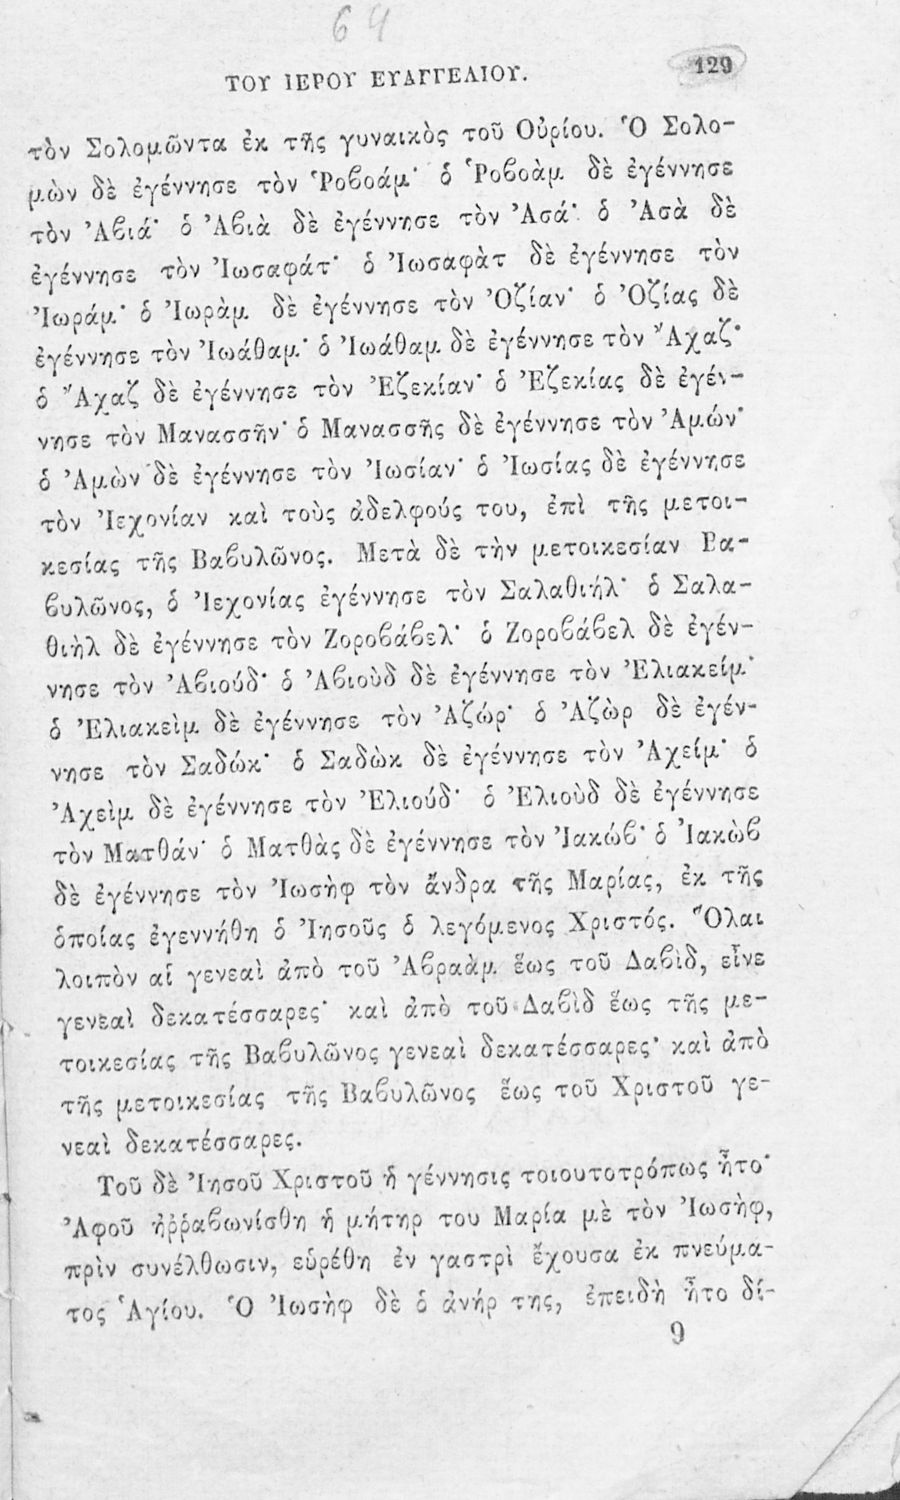 64
ΤΟΥ ΙΕΡΟΥ ΕΥΑΓΓΕΛΙΟΥ. 129
τὸν Σολομῶντα ἐκ τῆς γυναικὸς τοῦ Οὐρίου. Ὁ Σολο-
μὼν δὲ ἐγέννησε τὸν Ῥοβοάμ· ὁ Ῥοβοὰμ δὲ ἐγέννησε
τὸν Ἀβιά· ὁ Ἀβιὰ δὲ ἐγέννησε τὸν Ἀσά· ὁ Ἀσὰ δὲ
ἐγέννησε τὸν Ἰωσαφάτ· ὁ Ἰωσαφὰτ δὲ ἐγέννησε τὸν
Ἰωράμ· ὁ Ἰωρὰμ δὲ ἐγέννησε τὸν Ὀζίαν· ὁ Ὀζίας δὲ
ἐγέννησε τὸν Ἰωάθαμ· ὁ Ἰωάθαμ δὲ ἐγέννησε τὸν Ἄχαζ·
ὁ Ἄχαζ δὲ ἐγέννησε τὸν Ἐζεκίαν· ὁ Ἐζεκίας δὲ ἐγέν-
νησε τὸν Μανασσῆν· ὁ Μανασσῆς δὲ ἐγέννησε τὸν Ἀμών·
ὁ Ἀμὼν δὲ ἐγέννησε τὸν Ἰωσίαν· ὁ Ἰωσίας δὲ ἐγέννησε
τὸν Ἰεχονίαν καὶ τοὺς ἀδελφούς του, ἐπὶ τῆς μετοι-
κεσίας τῆς Βαβυλῶνος. Μετὰ δὲ τὴν μετοικεσίαν Βα-
βυλῶνος, ὁ Ἰεχονίας ἐγέννησε τὸν Σαλαθιήλ· ὁ Σαλα-
θιὴλ δὲ ἐγέννησε τὸν Ζοροβάβελ· ὁ Ζοροβάβελ δὲ ἐγέν-
νησε τὸν Ἀβιούδ· ὁ Ἀβιοὺδ δὲ ἐγέννησε τὸν Ἐλιακείμ·
ὁ Ἐλιακεὶμ δὲ ἐγέννησε τὸν Ἀζώρ· ὁ Ἀζὼρ δὲ ἐγέν-
νησε τὸν Σαδώκ· ὁ Σαδὼκ δὲ ἐγέννησε τὸν Ἀχείμ· ὁ
Ἀχεὶμ δὲ ἐγέννησε τὸν Ἐλιούδ· ὁ Ἐλιοὺδ δὲ ἐγέννησε
τὸν Ματθάν· ὁ Ματθὰς δὲ ἐγέννησε τὸν Ἰακώβ· ὁ Ἰακὼβ
δὲ ἐγέννησε τὸν Ἰωσὴφ τὸν ἄνδρα τῆς Μαρίας, ἐκ τῆς
ὁποίας ἐγεννήθη ὁ Ἰησοῦς ὁ λεγόμενος Χριστός. Ὅλαι
λοιπὸν αἱ γενεαὶ ἀπὸ τοῦ Ἀβραὰμ ἕως τοῦ Δαβὶδ, εἶνε
γενεαὶ δεκατέσσαρες· καὶ ἀπὸ τοῦ Δαβὶδ ἕως τῆς με-
τοικεσίας τῆς Βαβυλῶνος γενεαὶ δεκατέσσαρες· καὶ ἀπὸ
τῆς μετοικεσίας τῆς Βαβυλῶνος ἕως τοῦ Χριστοῦ γε-
νεαὶ δεκατέσσαρες.
Τοῦ δὲ Ἰησοῦ Χριστοῦ ἡ γέννησις τοιουτοτρόπως ἦτο·
Ἀφοῦ ἠῤῥαβωνίσθη ἡ μήτηρ του Μαρία μὲ τὸν Ἰωσὴφ,
πρὶν συνέλθωσιν, εὑρέθη ἐν γαστρὶ ἔχουσα ἐκ πνεύμα-
τος Ἁγίου. Ὁ Ἰωσὴφ δὲ ὁ ἀνήρ της, ἐπειδὴ ἦτο δί-
9